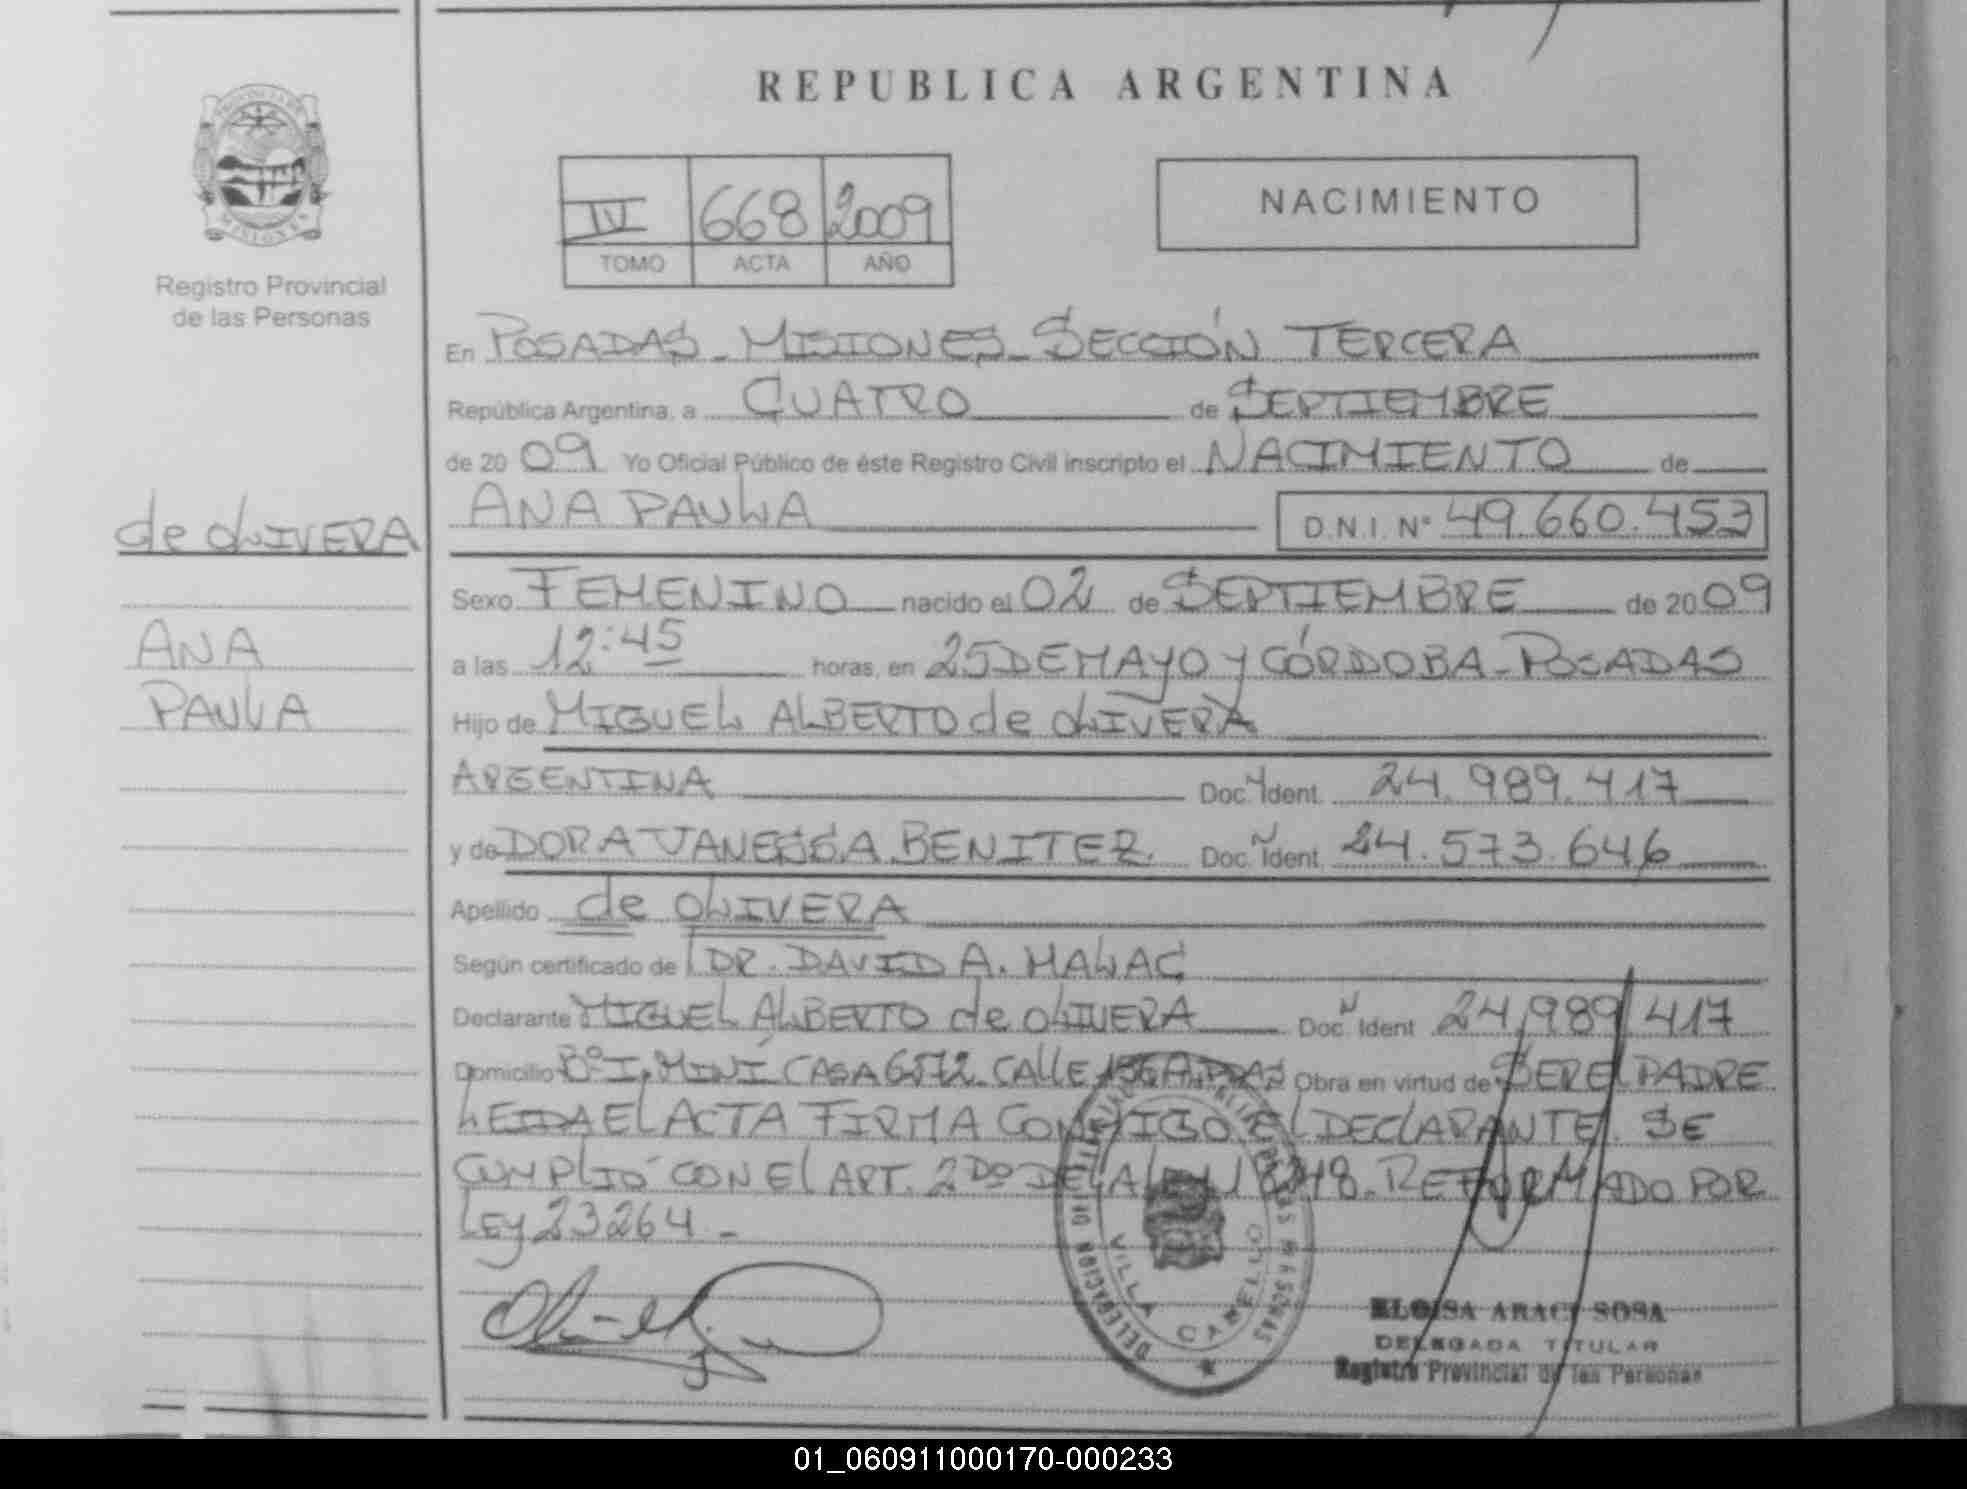 REPUBLICA ARGENTINA
PROVINCIA DE
MISIONES
Registro Provincial
de las Personas
IV 668 2009
TOMO ACTA AÑO
NACIMIENTO
En POSADAS - MISIONES - SECCIÓN TERCERA
República Argentina, a CUATRO de SEPTIEMBRE
de 2009 Yo Oficial Público de éste Registro Civil inscripto el NACIMIENTO de
ANA PAULA D.N.I. N° 49.660.453
de OLIVERA
ANA
PAULA
Sexo FEMENINO nacido el 02 de SEPTIEMBRE de 2009
a las 12:45 horas, en 25 DE MAYO y CÓRDOBA - POSADAS
Hijo de MIGUEL ALBERTO de OLIVERA
ARGENTINA Doc. Ident. 24.989.417
y de DORA VANESSA BENITEZ Doc. Ident. 24.573.646
Apellido de OLIVERA
Según certificado de DR. DAVID A.
Declarante MIGUEL ALBERTO de OLIVERA Doc. Ident 24.989.417
Domicilio Bº I. MINÍ CASA 6572 CALLE Obra en virtud de SER EL PADRE
LEIDA EL ACTA FIRMA CONMIGO EL DECLARANTE. SE
CUMPLIÓ CON EL ART. 2DO DE LA LEY 18248. REFORMADO POR
LEY 23264 -
VILLA CABELLO
ELOISA ARACI SOSA
DELEGADA TITULAR
Registro Provincial de las Personas
01_060911000170-000233